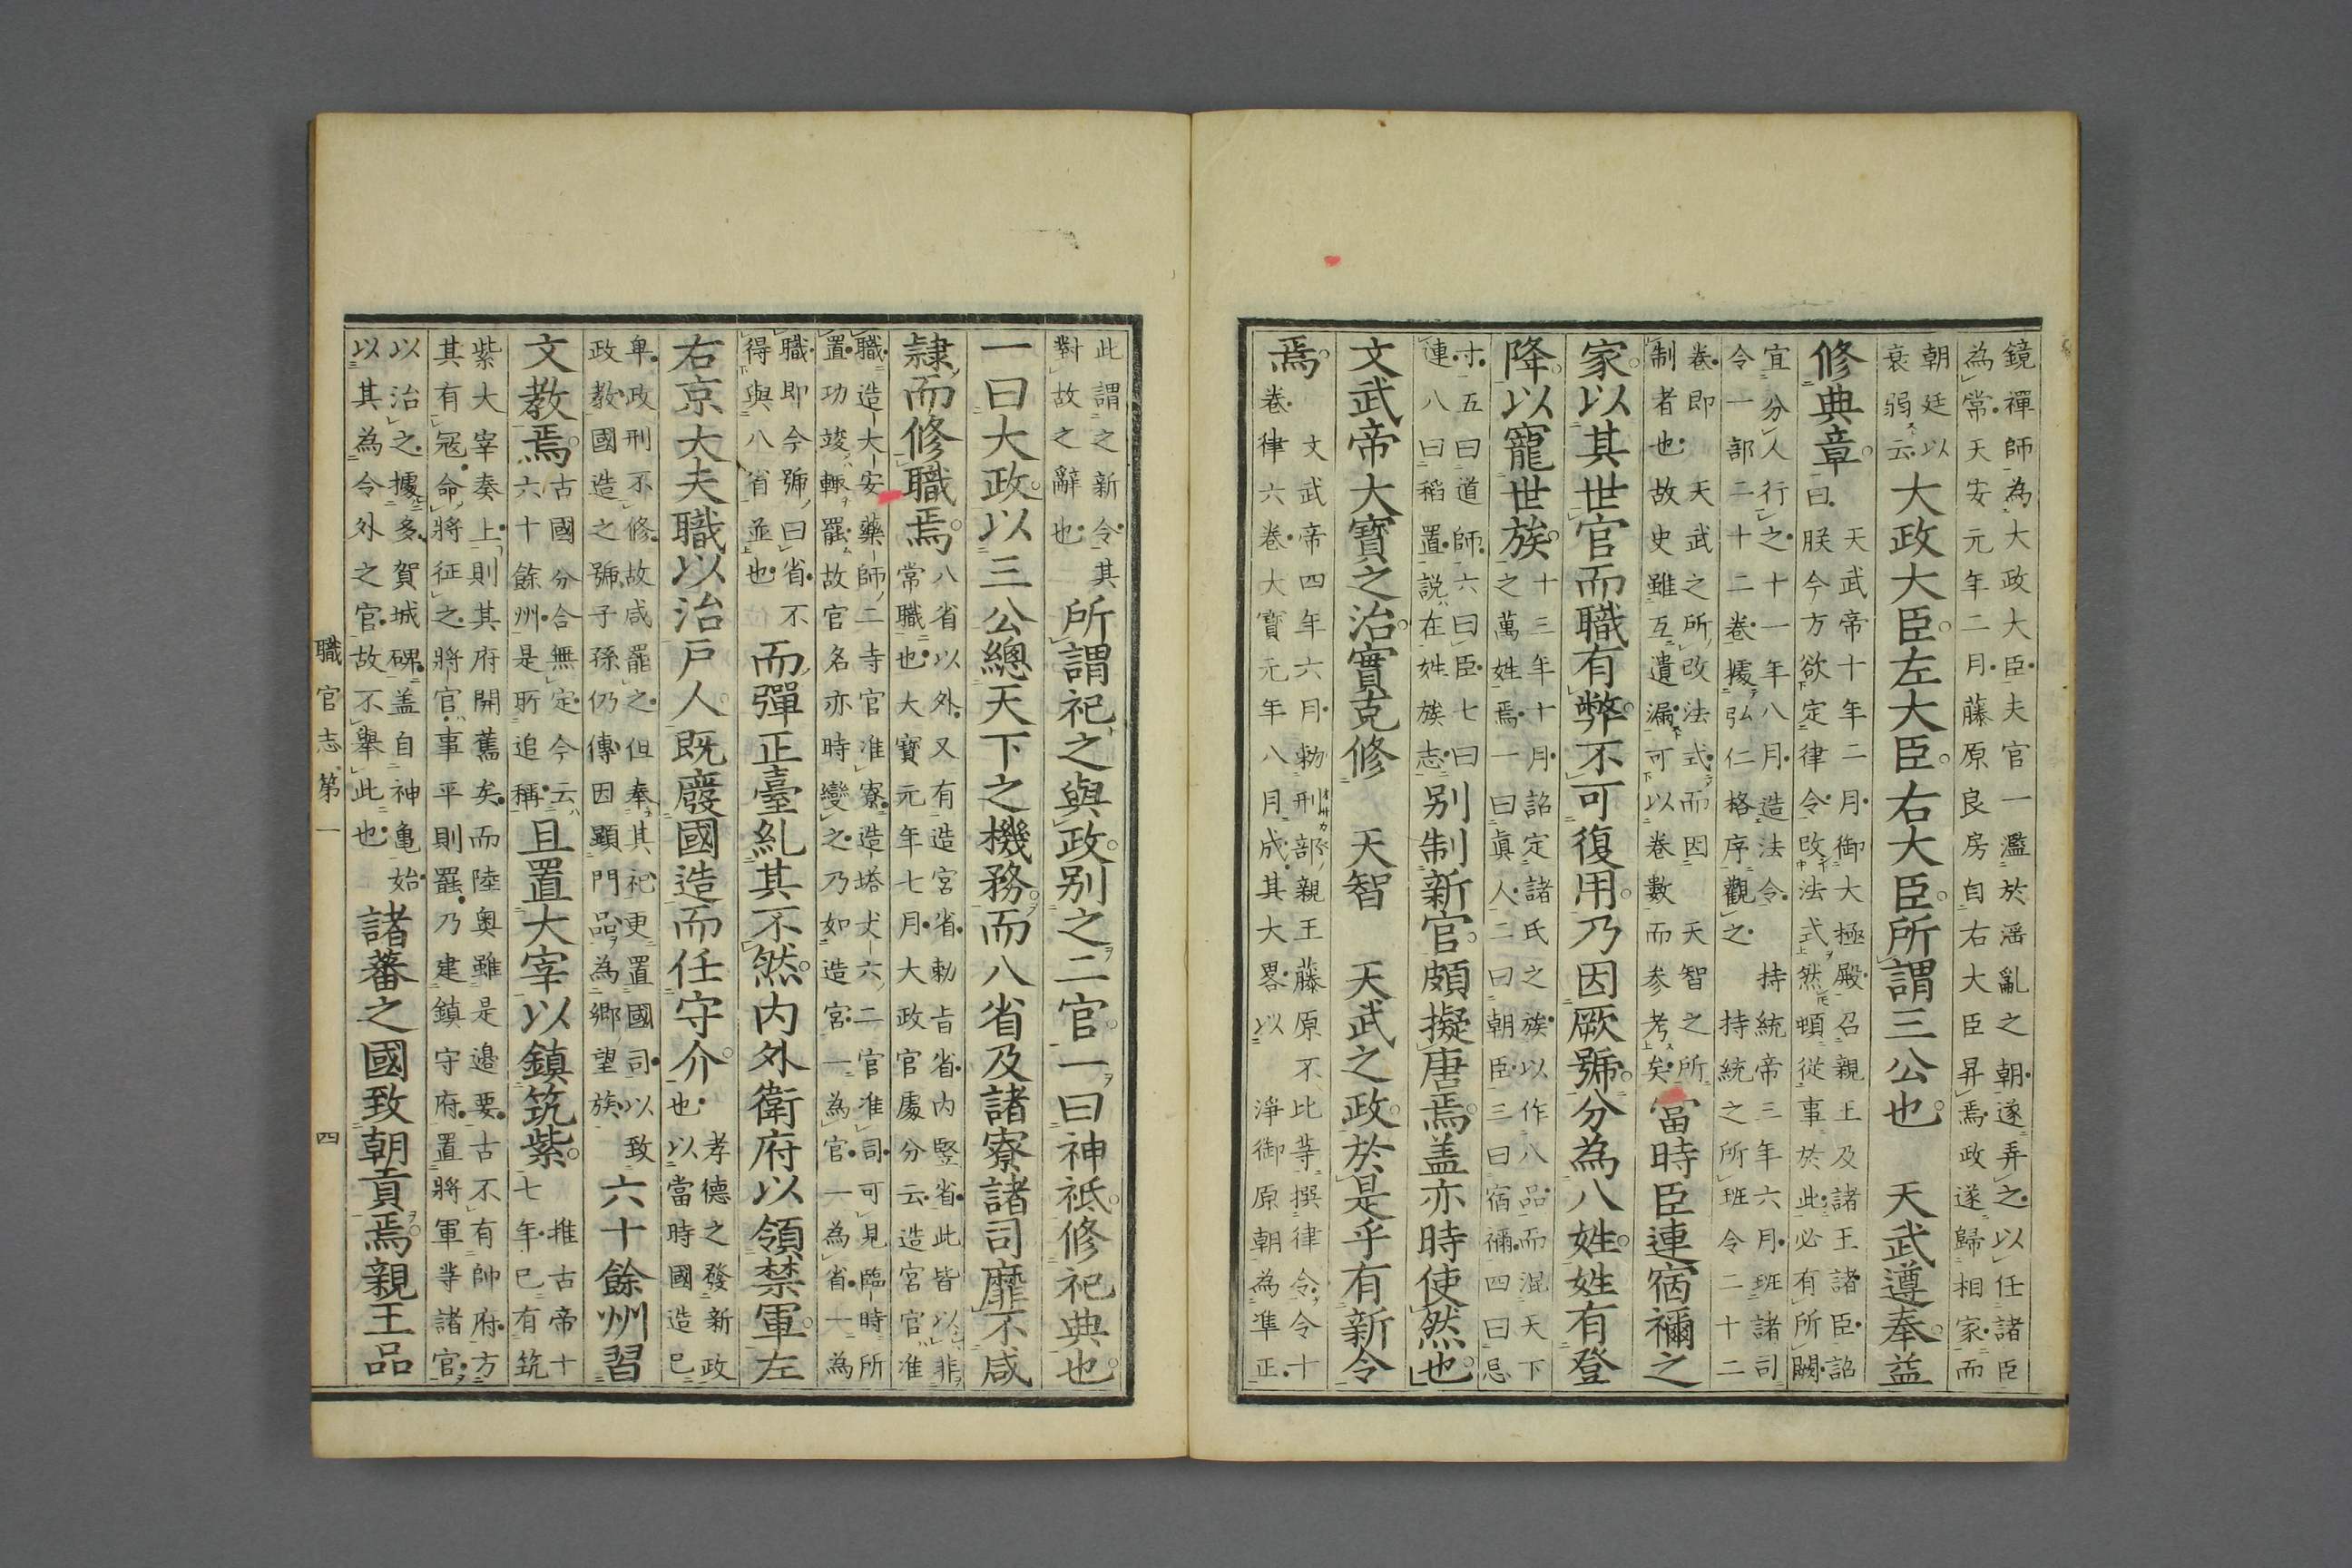 鏡禪師為大政大臣夫官一濫於滛亂之朝遂弄之以任諸臣
為常天安元年二月藤原良房自右大臣昇焉政遂歸相家而
朝廷以
衰弱云大政大臣左大臣右大臣所謂三公也　天武遵奉益
修典章曰天武帝十年二月御大極殿召親王及諸王諸臣詔
朕今方欲定律令改法式然頓從事於此必有所闕
宜分人行之十一年八月造法令　持統帝三年六月班諸司
令一部二十二卷據弘仁格序觀之　持統之所班令二十二
卷即　天武之所改法式而因　天智之所
制者也故史雖互遺漏可以卷數而参考矣當時臣連宿禰之
家以其世官而職有弊不可復用乃因厥號分為八姓姓有登
降以寵世族十三年十月詔定諸氏之族以作八品而混天下
之萬姓焉一曰眞人二曰朝臣三曰宿禰四曰忌
寸五曰道師六曰臣七曰
連八曰稻置説在姓族志别制新官頗擬唐焉盖亦時使然也
文武帝大寶之治實克修　天智　天武之政於是乎有新令
焉文武帝四年六月勅刑部親王藤原不比等撰律令令十
卷律六卷大寶元年八月成其大畧以　淨御原朝為準正
此謂之新令其
對故之辭也所謂祀之與政别之二官一曰神祗修祀典也
一曰大政以三公總天下之機務而八省及諸寮諸司靡不咸
隷而修職焉八省以外又有造宮省勅旨省内竪省此皆以非
常職也大寶元年七月大政官處分云造宮官准
職造大安藥師二寺官准寮造塔丈六二官准司可見臨時所
置功竣輙罷故官名亦時變之乃如造宮一為官一為省一為
職即今號曰省不
得與八省並也而彈正臺糺其不然内外衛府以領禁軍左
右京大夫職以治戸人既廢國造而任守介也孝德之發新政
以當時國造已
卑政刑不修故咸罷之但奉其祀更置國司以致
政教國造之號子孫仍傳因顯門品為鄉望族六十餘州習
文教焉古國分合無定今云
六十餘州是所追稱且置大宰以鎮筑紫推古帝十
七年已有筑
紫大宰奏上則其府開舊矣而陸奥雖是邉要古不有帥府方
其有冦命將征之將官事平則罷乃建鎮守府置將軍等諸官
以治之據多賀城碑盖自神亀始
以其為令外之官故不舉此也諸蕃之國致朝貢焉親王品
職官志第一
四